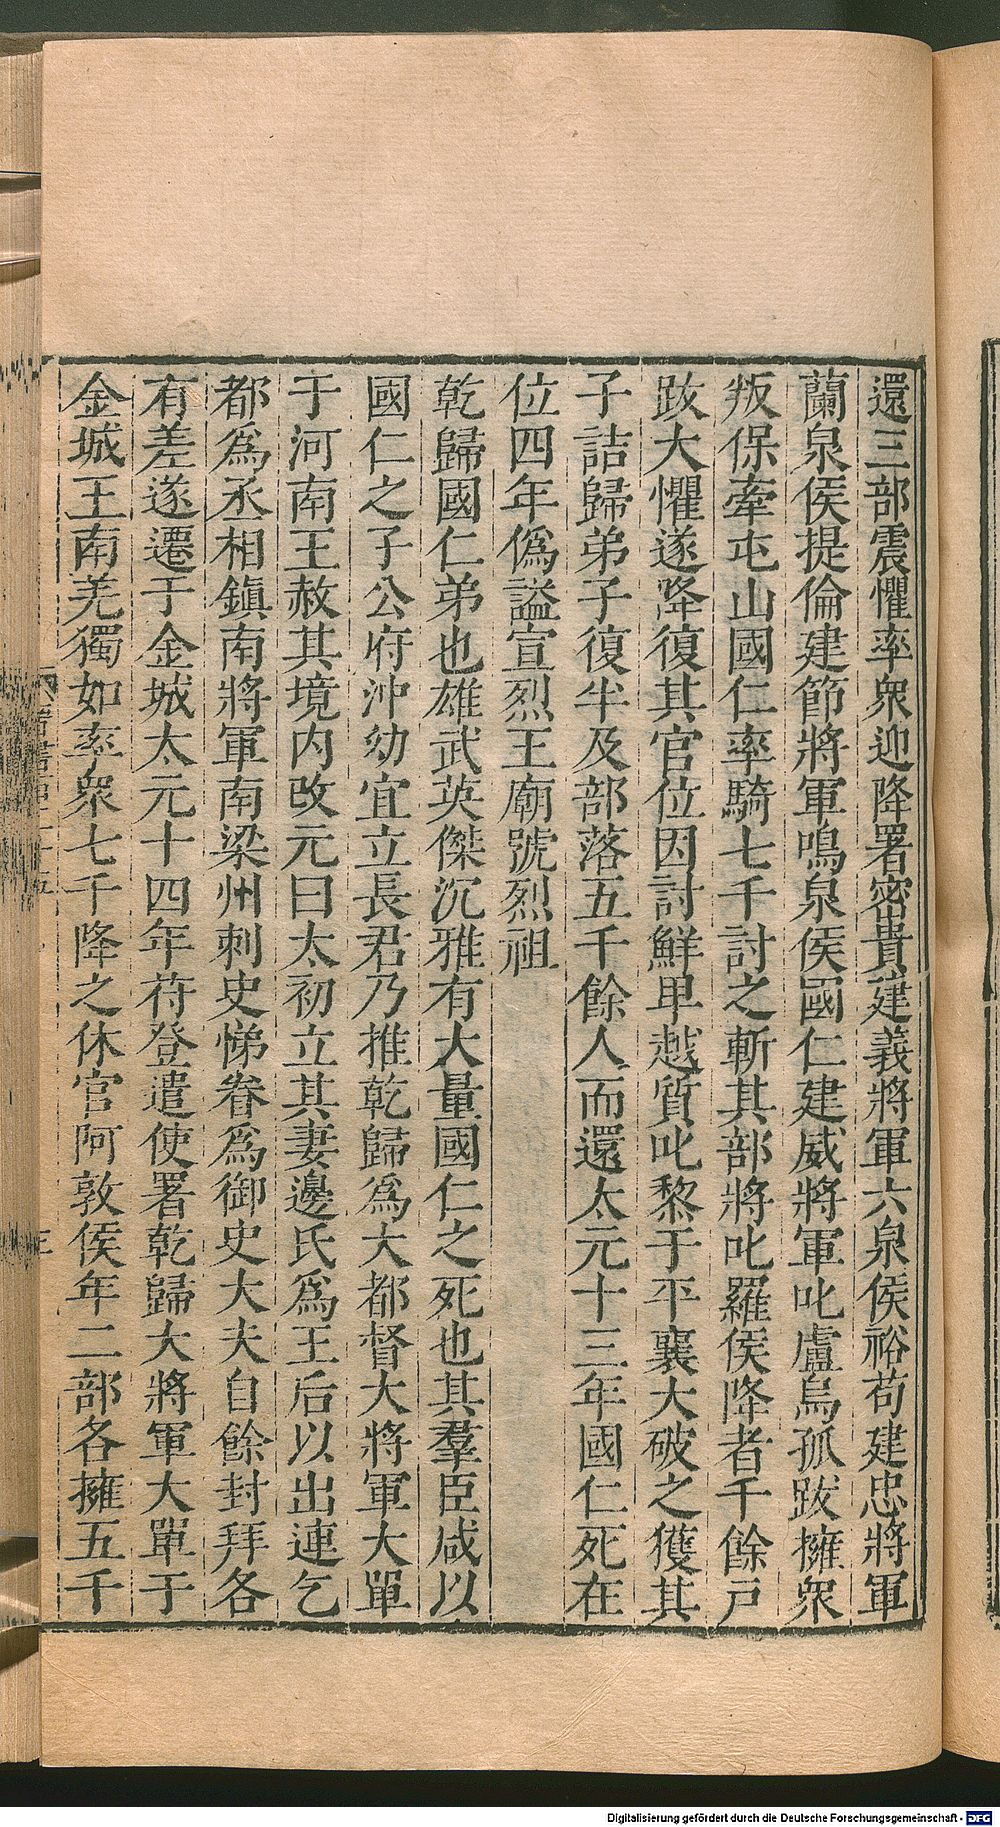 還三部震懼率衆迎降署密貴建義將軍六泉侯裕苟建忠將軍
蘭泉侯提倫建節將軍鳴泉侯國仁建威將軍叱盧烏孤跋擁衆
叛保牽屯山國仁率騎七千討之斬其部將叱羅侯降者千餘戶
跋大懼遂降復其官位因討鮮卑越質叱黎于平襄大破之獲其
子詰歸弟子復半及部落五千餘人而還太元十三年國仁死在
位四年僞謚宣烈王廟號烈祖
乾歸國仁弟也雄武英傑沉雅有大量國仁之死也其羣臣咸以
國仁之子公府沖幼宜立長君乃推乾歸爲大都督大將軍大單
于河南王赦其境内改元曰太初立其妻邊氏爲王后以出連乞
都爲丞相鎭南將軍南梁州刺史悌眷爲御史大夫自餘封拜各
有差遂遷于金城太元十四年苻登遣使署乾歸大將軍大單于
金城王南羌獨如率衆七千降之休官阿敦侯年二部各擁五千
Digitalisierung gefördert durch die Deutsche Forschungsgemeinschaft - DFG